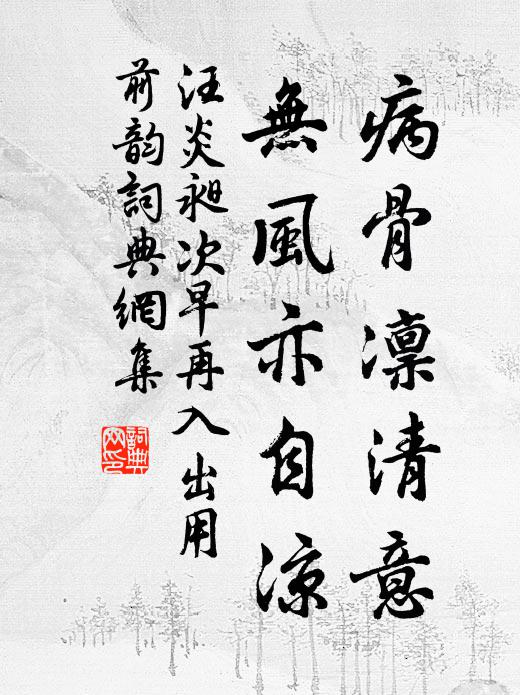 病骨凛清意
無風亦自凉
汪炎昶次早再入出用
前韵詞典網集
詞典
网印